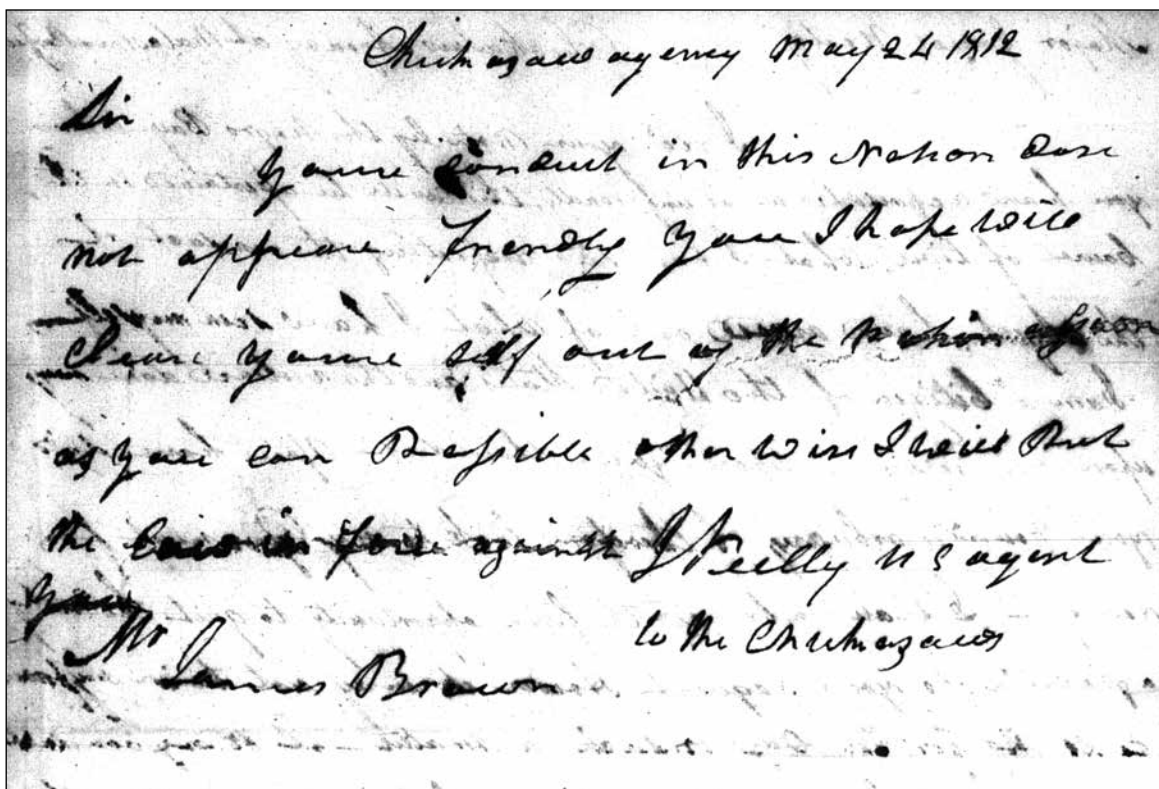 Chickasaw agency May 24 1812
Sir
Youre conduct in this Nation dose
not appeare frendly you I hope will
Cleare youre self out of the Nation as soon
as you can Possible other wise I will Put
the Law in force against J Neelly U S agent
you
to the Chickasaws
Mr
James Brown